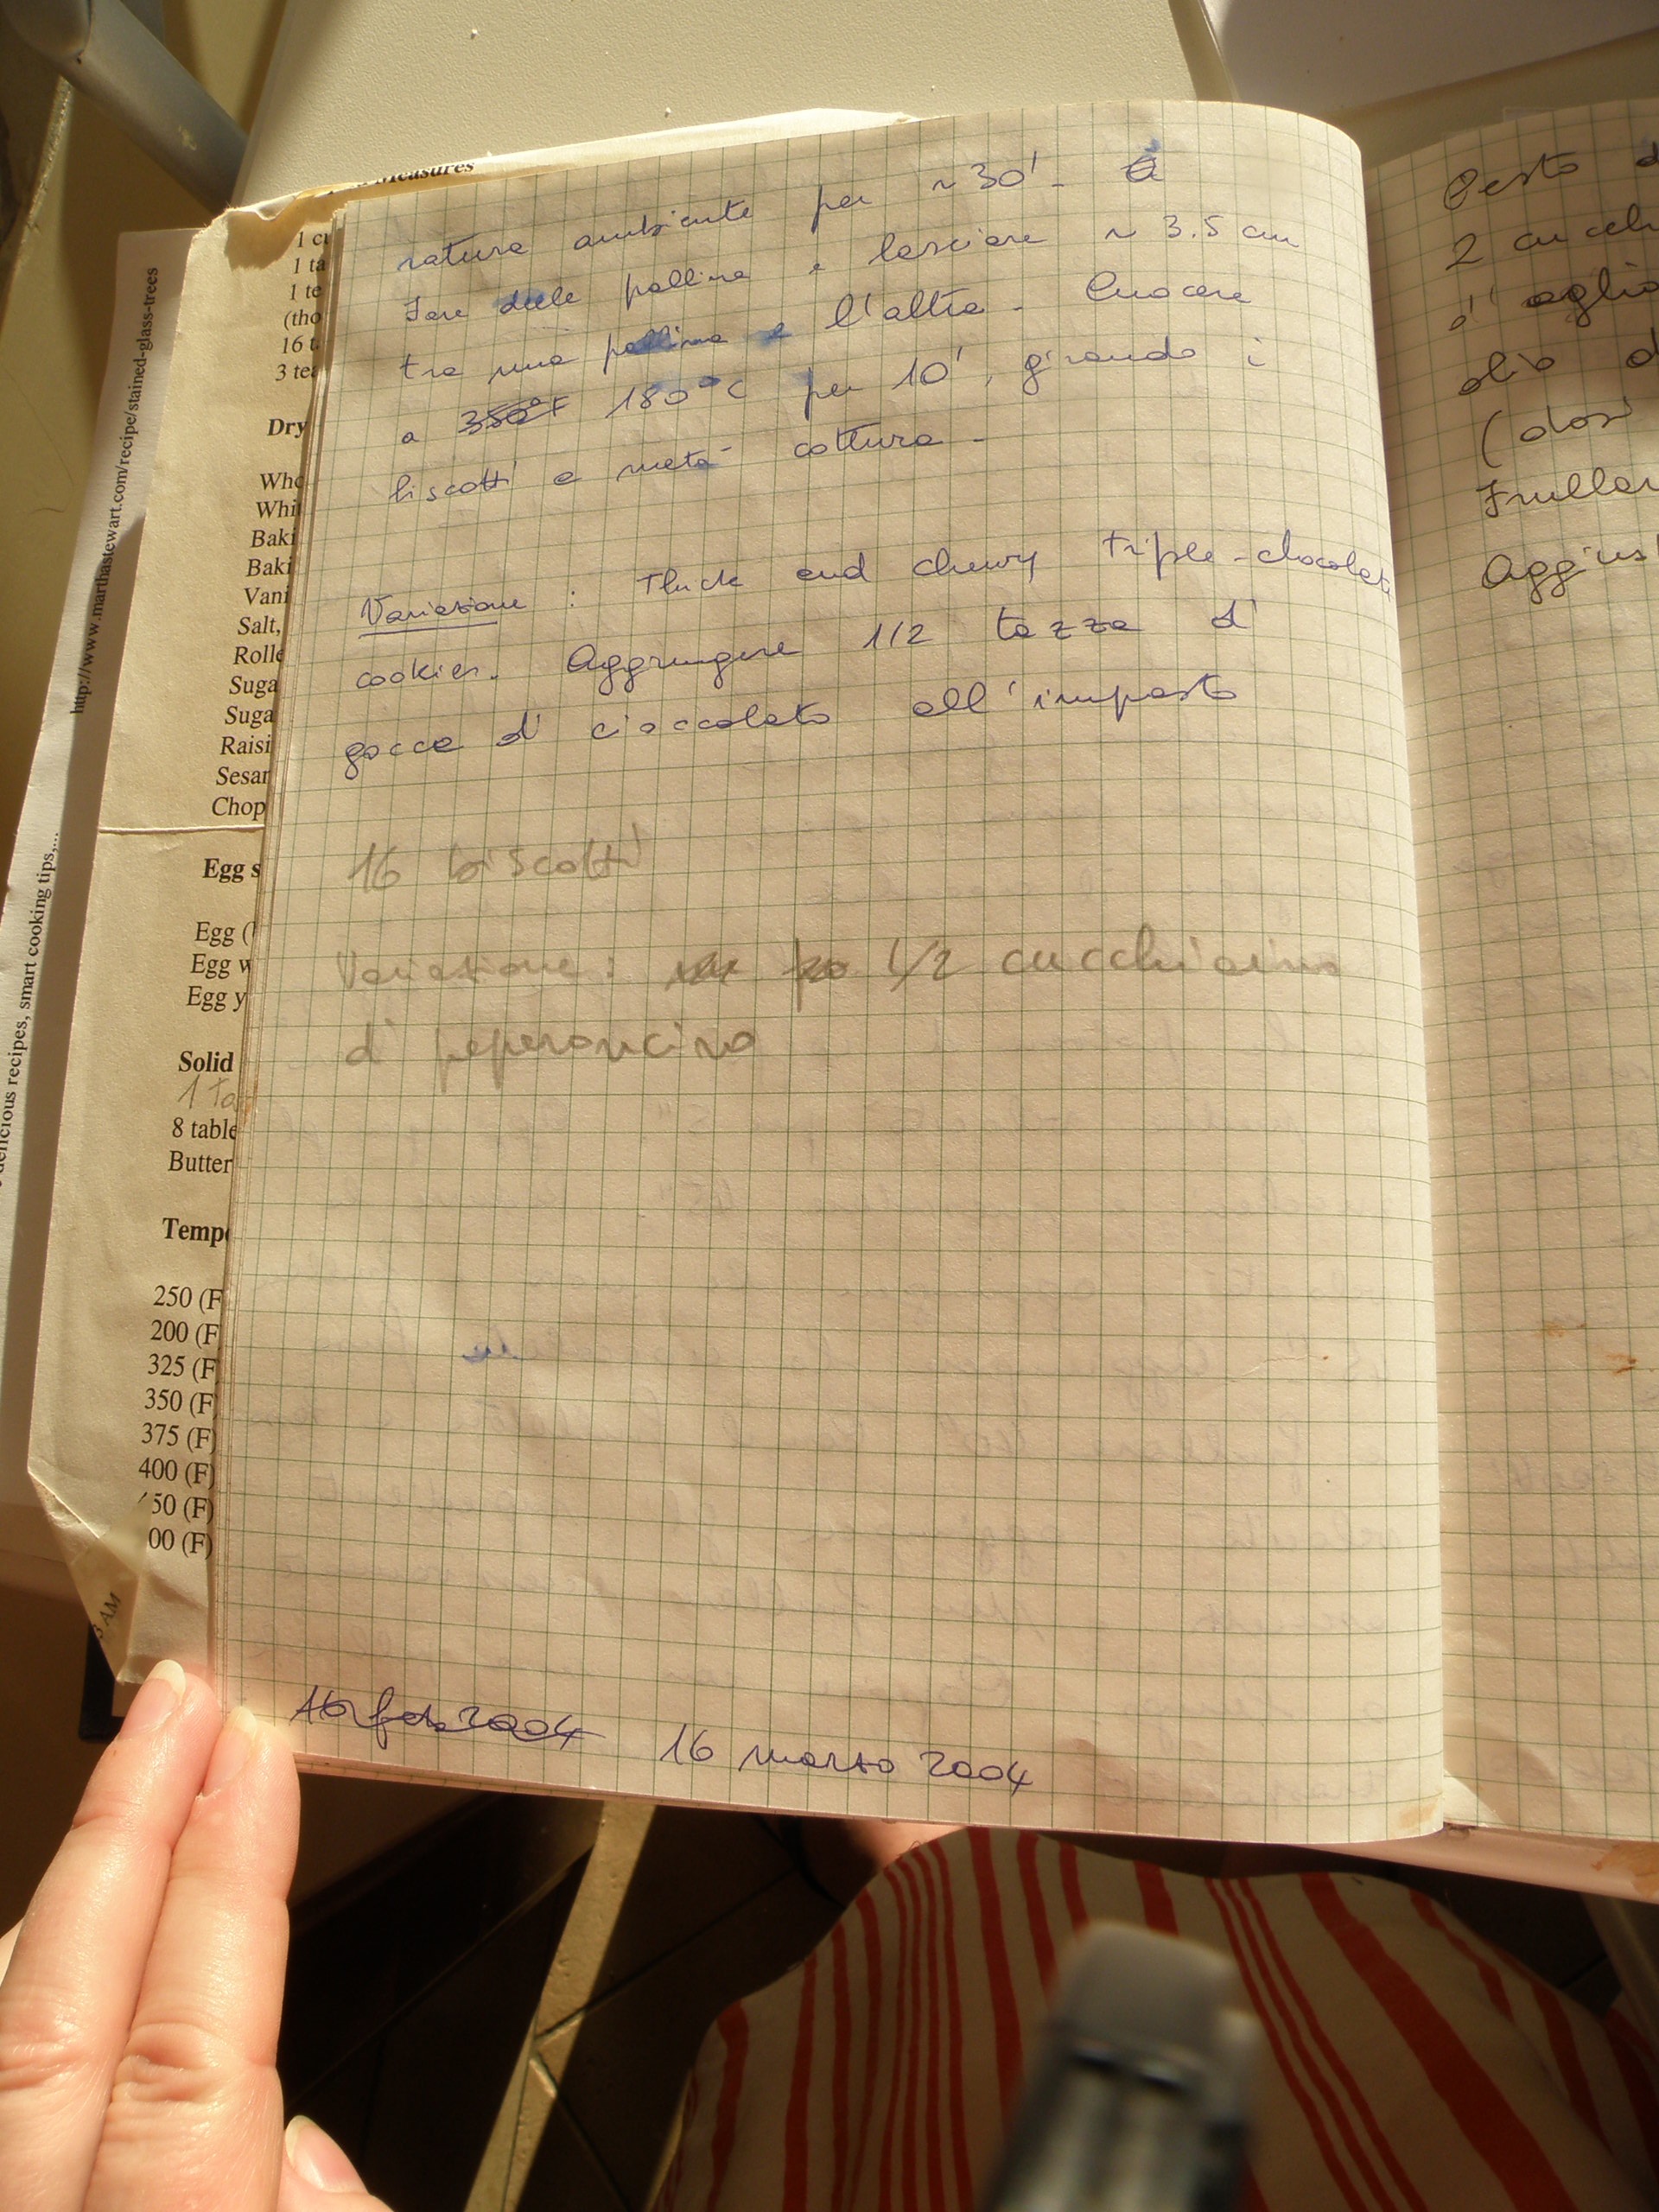 http://www.marthastewart.com/recipe/stained-glass-trees
delicious recipes, smart cooking tips,...
Measures
1 cu
1 ta
1 te
(tho
16 t
3 tea
Dry
Who
Whi
Baki
Baki
Vani
Salt,
Rolle
Suga
Suga
Raisi
Sesar
Chop
Egg s
Egg (
Egg w
Egg y
Solid
1 Ta
8 table
Butter
Tempe
250 (F
200 (F
325 (F
350 (F
375 (F)
400 (F)
50 (F)
00 (F)
AM
ratura ambiente per ~30'-
Fare delle palline e lasciare ~ 3.5 cm
tra una pallina e l'altra - Cuocere
a 350°F 180°C per 10', girando i
biscotti a metà cottura -
Variazione : Thick and chewy triple-chocolate
cookies. Aggiungere 1/2 tazza di
gocce di cioccolato all'impasto
16 biscotti
Variazione: un po 1/2 cucchiaino
di peperoncino
16 feb 2004 16 marzo 2004
Pesto d
2 cucch
d'aglio
olio d
(dosi
Frullar
Aggius